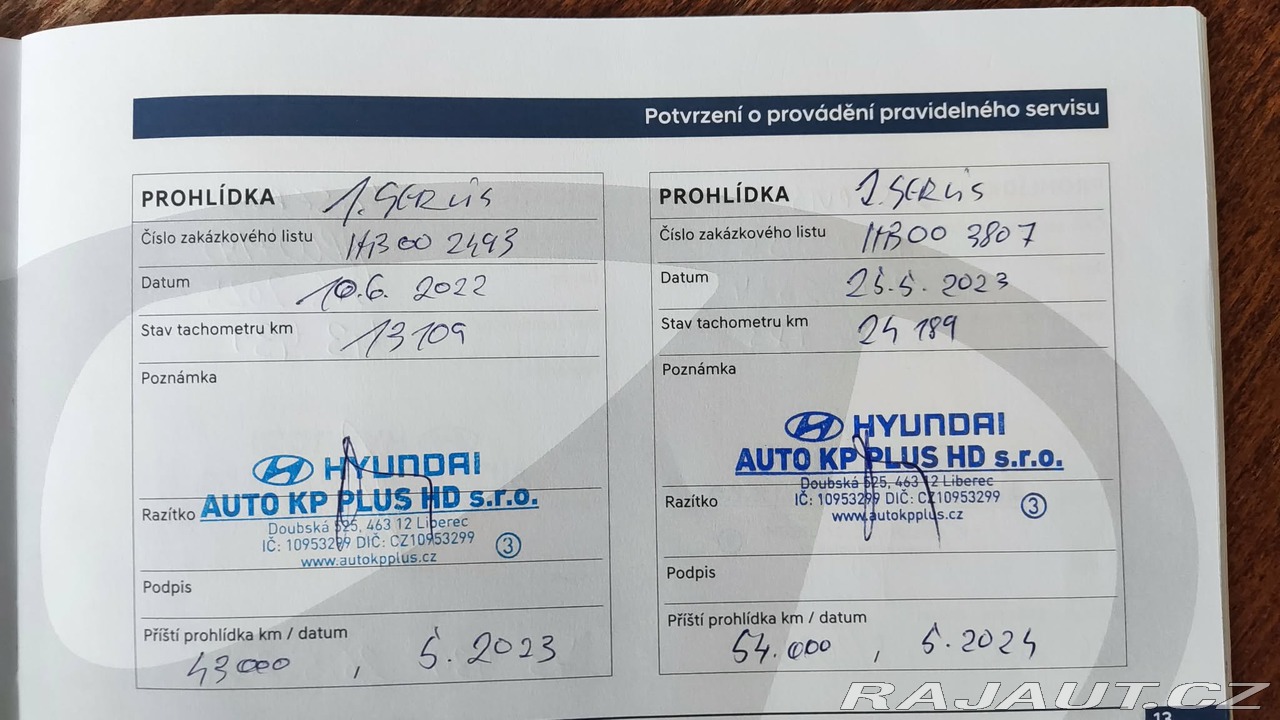 Potvrzení o provádění pravidelného servisu
PROHLÍDKA 1. SERVIS
Číslo zakázkového listu HB00 2493
Datum 10.6. 2022
Stav tachometru km 13 109
Poznámka
HYUNDAI
AUTO KP PLUS HD s.r.o.
Razítko
Doubská 525, 463 12 Liberec
IČ: 10953299 DIČ: CZ10953299
www.autokpplus.cz
3
Podpis
Příští prohlídka km / datum
43 000 , 5. 2023
PROHLÍDKA 2. SERVIS
Číslo zakázkového listu HB00 3807
Datum 25.5. 2023
Stav tachometru km 24 189
Poznámka
HYUNDAI
AUTO KP PLUS HD s.r.o.
Doubská 525, 463 12 Liberec
Razítko
IČ: 10953299 DIČ: CZ10953299
www.autokpplus.cz
3
Podpis
Příští prohlídka km / datum
54.000 , 5.2024
RAJAUT.CZ
13